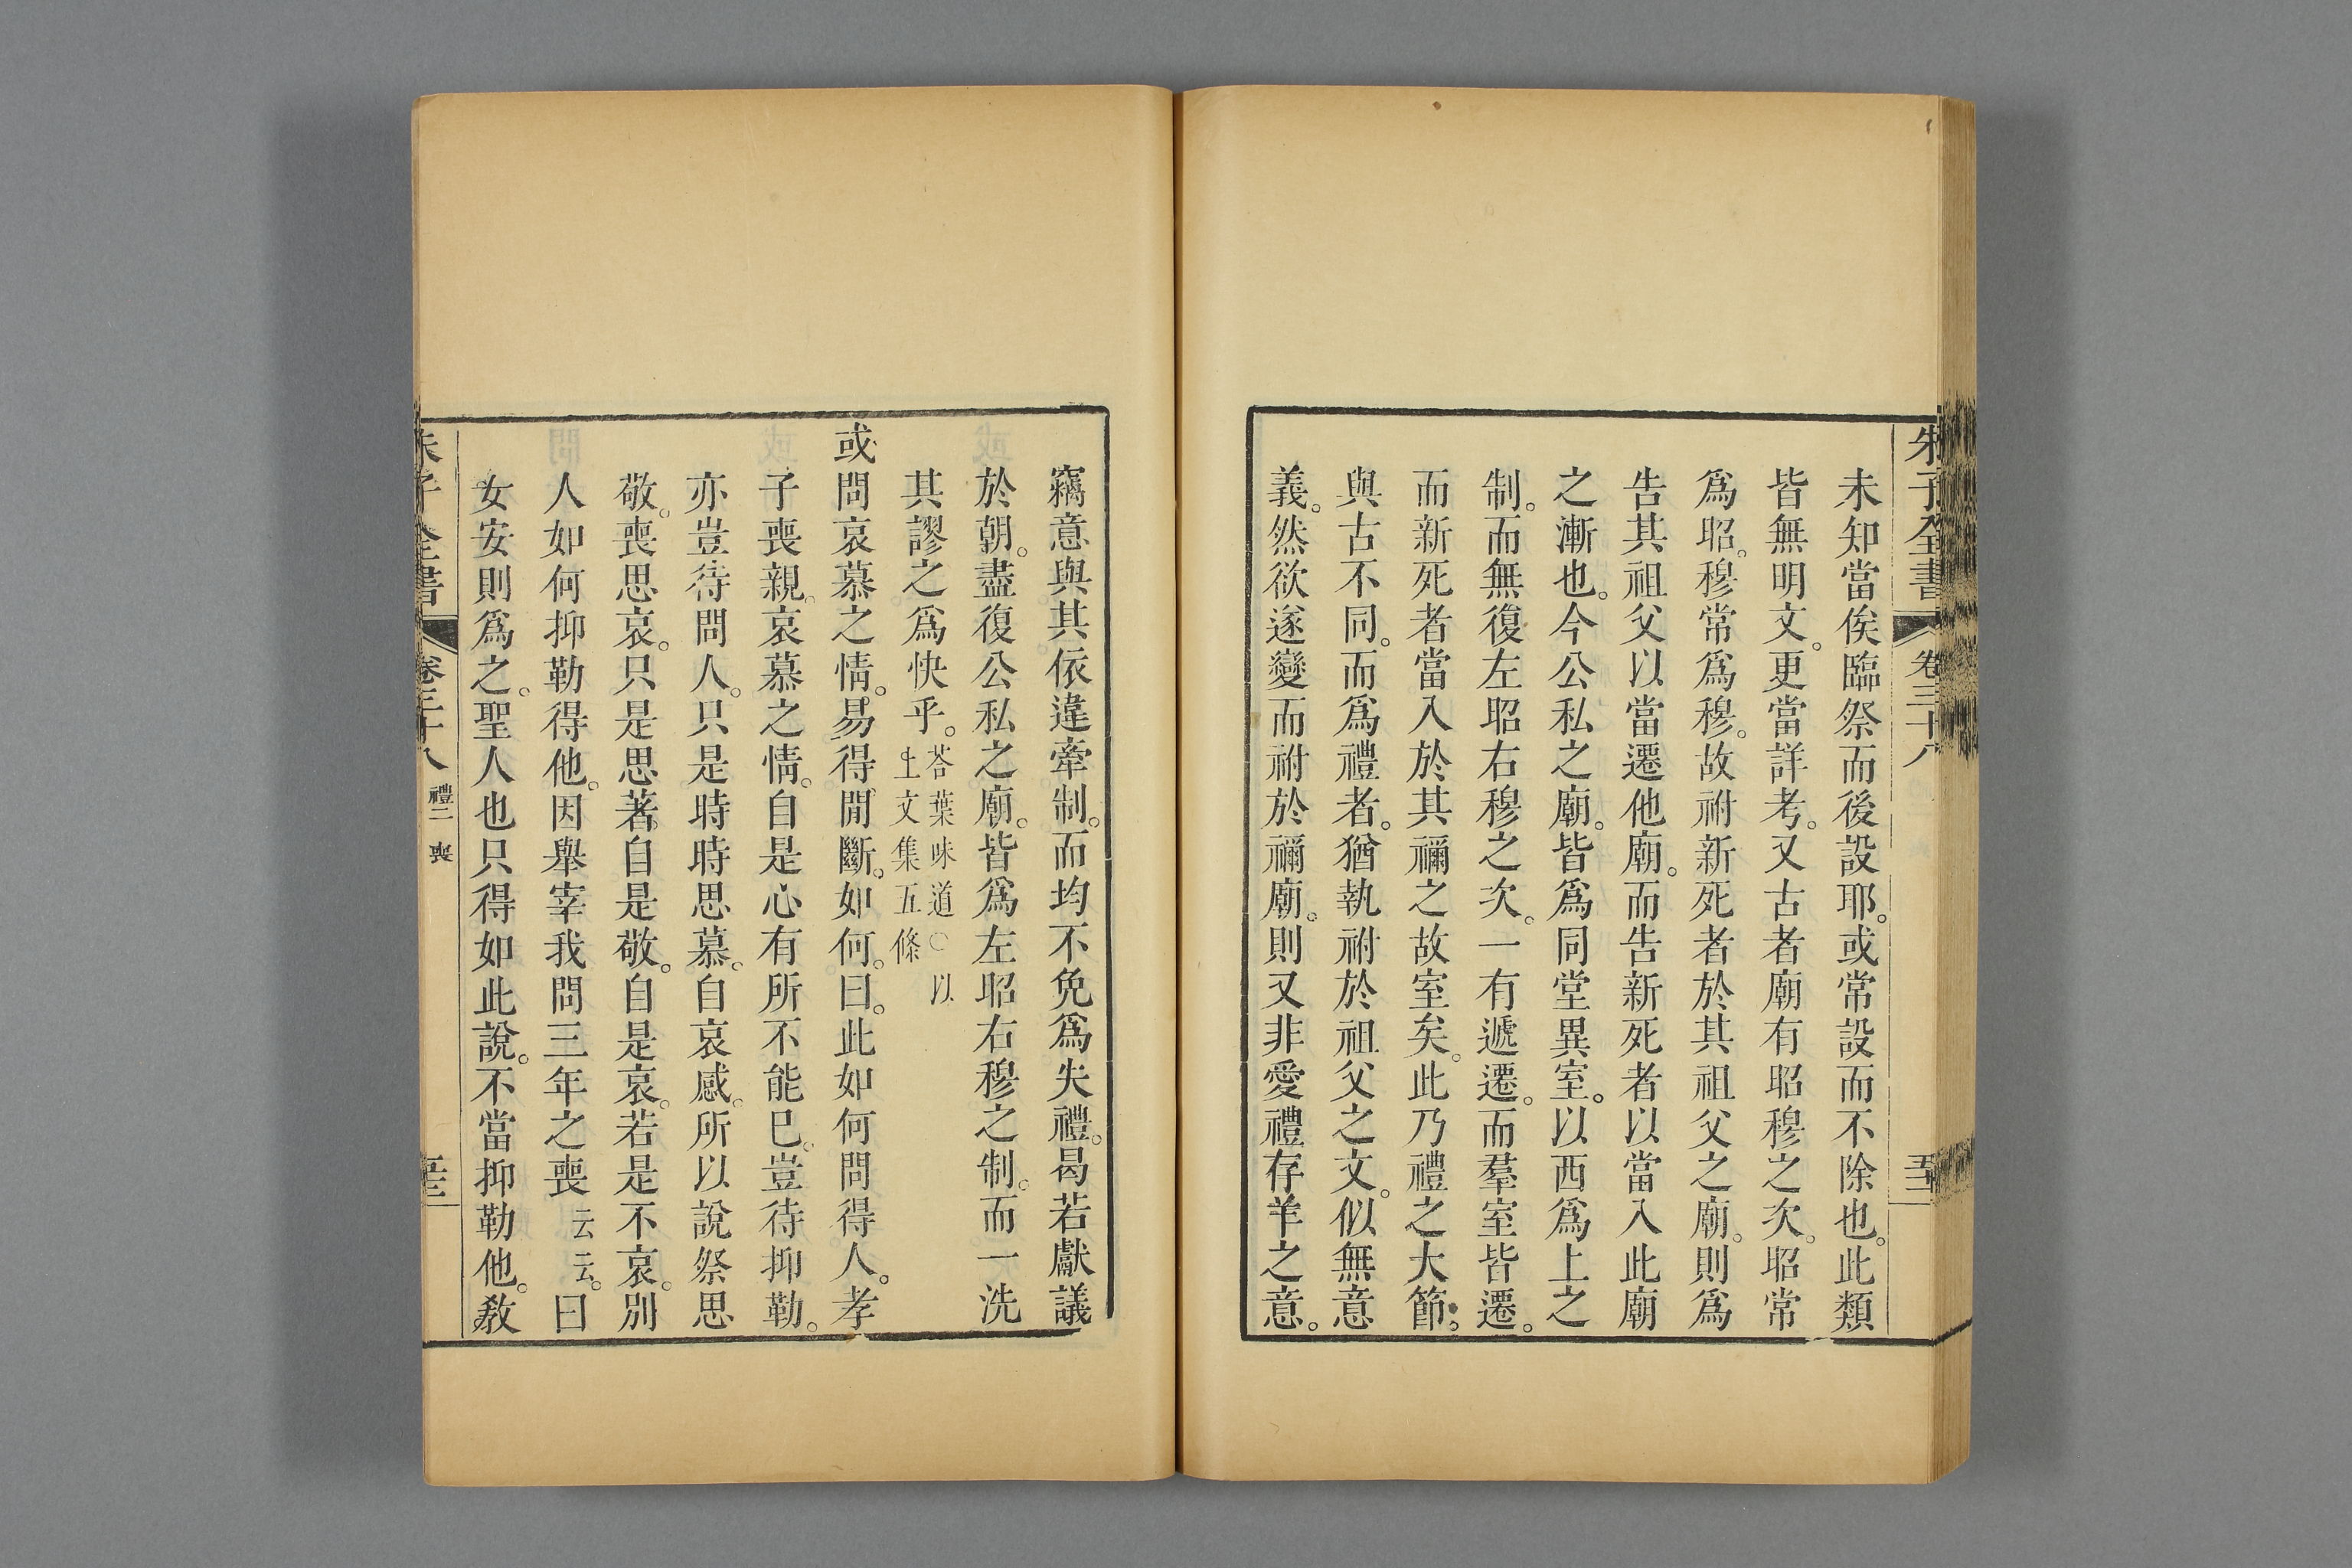 朱子全書 卷三十八 五十二
未知當俟臨祭而後設耶。或常設而不除也。此類
皆無明文。更當詳考。又古者廟有昭穆之次。昭常
爲昭。穆常爲穆。故祔新死者於其祖父之廟。則爲
告其祖父以當遷他廟。而告新死者以當入此廟
之漸也。今公私之廟。皆爲同堂異室。以西爲上之
制。而無復左昭右穆之次。一有遞遷。而羣室皆遷。
而新死者當入於其禰之故室矣。此乃禮之大節。
與古不同。而爲禮者。猶執祔於祖父之文。似無意
義。然欲遂變而祔於禰廟。則又非愛禮存羊之意。
竊意與其依違牽制。而均不免爲失禮。曷若獻議
於朝。盡復公私之廟。皆爲左昭右穆之制。而一洗
其謬之爲快乎。答葉味道○以
上文集五條
或問哀慕之情。易得閒斷。如何。曰。此如何問得人。孝
子喪親。哀慕之情。自是心有所不能已。豈待抑勒。
亦豈待問人。只是時時思慕。自哀感。所以說祭思
敬。喪思哀。只是思著。自是敬。自是哀。若是不哀。別
人如何抑勒得他。因舉宰我問三年之喪云云。曰
女安則爲之。聖人也只得如此說。不當抑勒他。教
朱子全書 卷三十八 禮二 喪 五十三